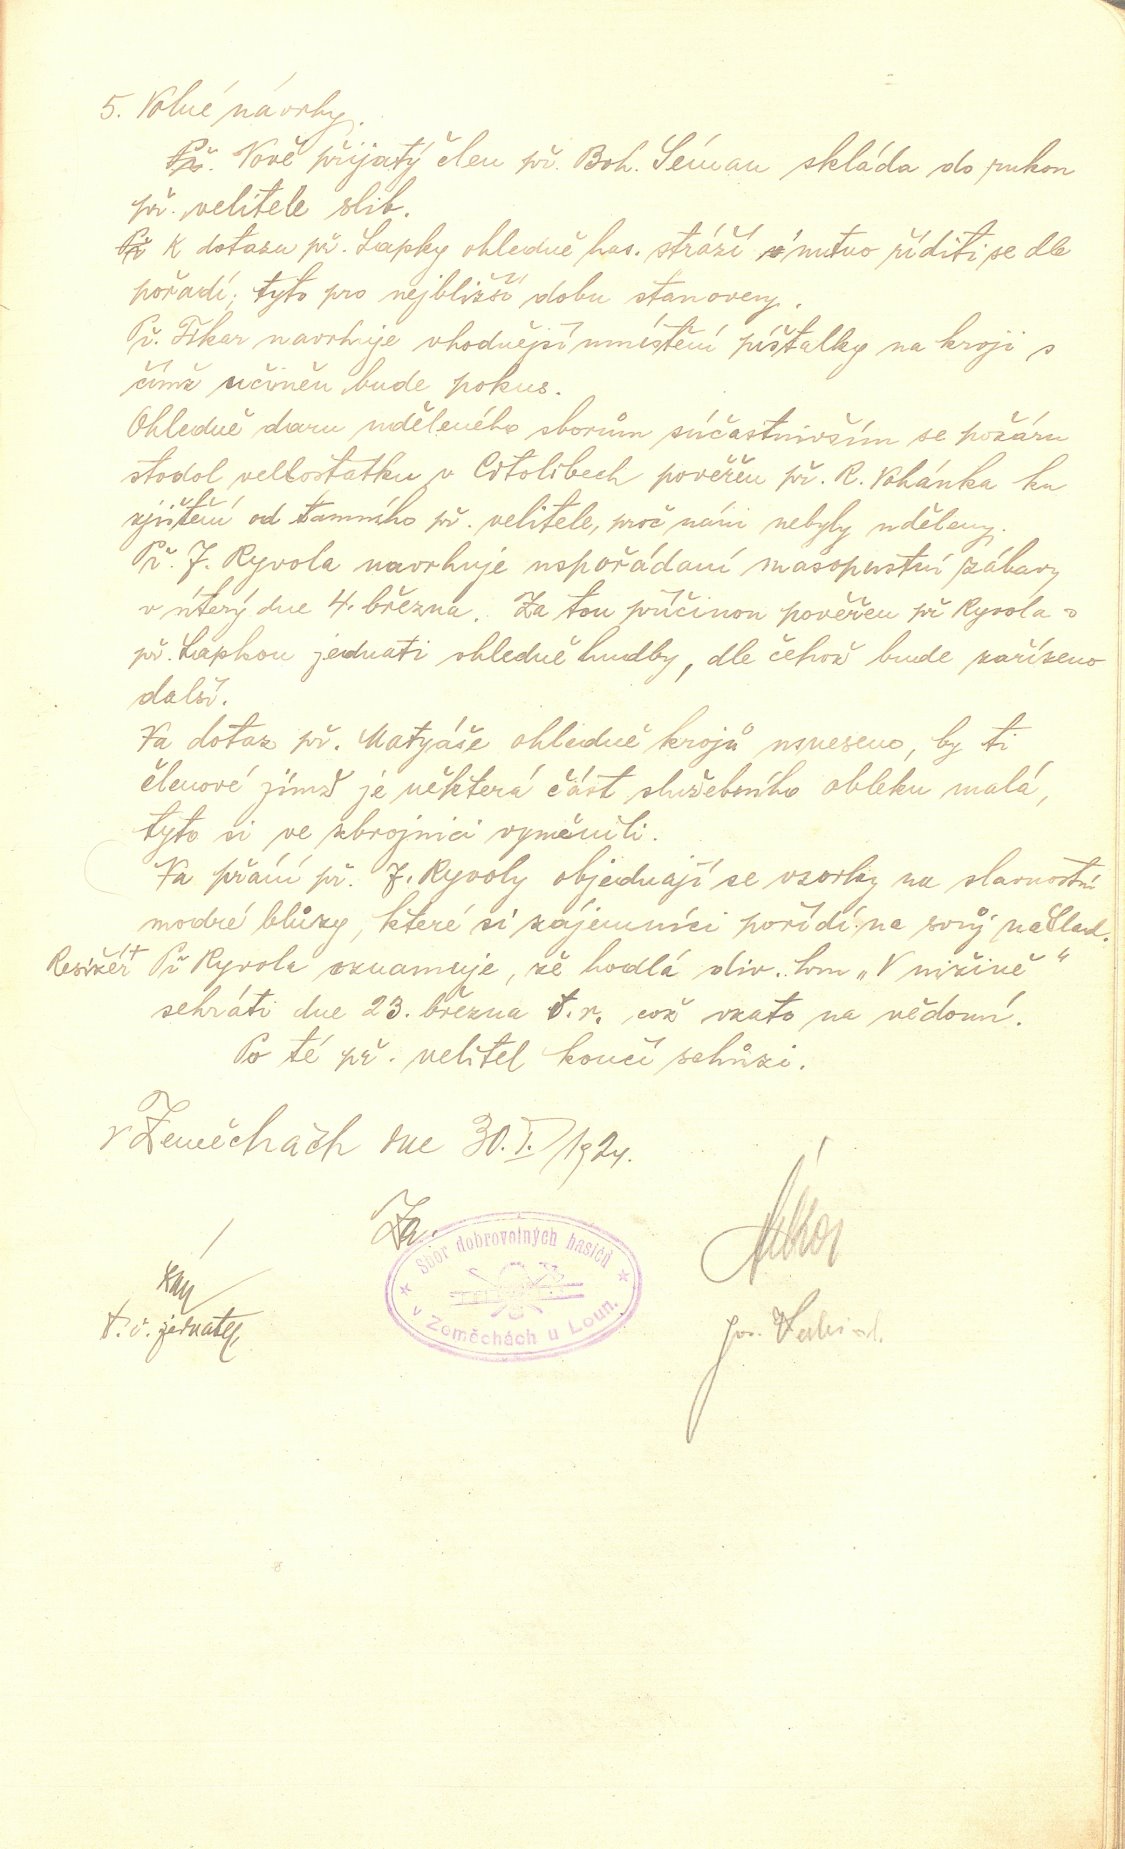 5. Volné návrhy.
Př. Nově přijatý člen př. Boh. Séman skláda do rukou
př. velitele slib.
Př K dotazu př. Lapky ohledně has. stráží nutno říditi se dle
pořadí; tyto pro nejbližší dobu stanoveny.
Př. Fikar navrhuje vhodnější umístění píšťalky na kroji s
čímž učiněn bude pokus.
Ohledně daru uděleného sborům súčastnivším se požáru
stodol velkostatku v Citolibech pověřěn př. R. Vohánka ku
zjištění od tamního př. velitele, proč námi nebyly uděleny.
Př. J. Ryvola navrhuje uspořádaní masopustní zábavy
v úterý dne 4. března. Za tou příčinou pověřen př Ryvola s
př. Lapkou jednati ohledně hudby, dle čehož bude zařízeno
další.
Na dotaz př. Matyáše ohledně krojů usneseno, by ti
členové jímž je některá část služebního obleku malá,
tyto si ve zbrojnici vyměnili.
Na přání př. J. Ryvoly objednají se vzorky na slavnostní
modré blůzy, které si zájemníci pořídí na svůj náklad.
Resižér+ Př Ryvola oznamuje, že hodlá div. hru „V nížině“
sehráti dne 23. března t. r. což vzato na vědomí.
Po té př. velitel končí schůzi.
v Zeměchách dne 30. I. 1924.
Za
Sbor dobrovolných hasičů
v Zeměchách u Loun.
t. č. jednatel
Jos.